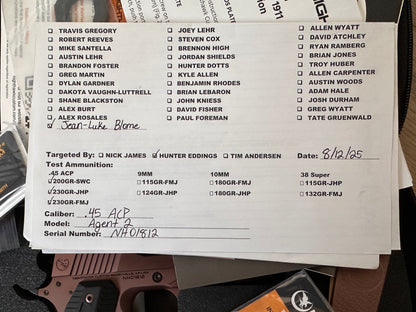 1911
☐ TRAVIS GREGORY ☐ JOEY LEHR ☐ ALLEN WYATT
☐ ROBERT REEVES ☐ STEVEN COX ☐ DAVID ATCHLEY
☐ MIKE SANTELLA ☐ BRENNON HIGH ☐ RYAN RAMBERG
☐ AUSTIN LEHR ☐ JORDAN SHIELDS ☐ BRIAN JONES
☐ BRANDON FOSTER ☐ HUNTER DOTTS ☐ TROY HUBER
☐ GREG MARTIN ☐ KYLE ALLEN ☐ ALLEN CARPENTER
☐ DYLAN GARDNER ☐ BENJAMIN RHODES ☐ AUSTIN WOODS
☐ DAKOTA VAUGHN-LUTTRELL ☐ BRIAN LEBARON ☐ ADAM HALE
☐ SHANE BLACKSTON ☐ JOHN KNIESS ☐ JOSH DURHAM
☐ ALEX BURT ☐ DAVID FISHER ☐ GREG WYATT
☐ ALEX ROSALES ☐ PAUL FOREMAN ☐ TATE GRUENWALD
☑ Jean-Luke Blome
Targeted By: ☐ NICK JAMES ☑ HUNTER EDDINGS ☐ TIM ANDERSEN Date: 8/12/25
Test Ammunition:
.45 ACP 9MM 10MM 38 Super
☑ 200GR-SWC ☐ 115GR-FMJ ☐ 180GR-FMJ ☐ 115GR-JHP
☑ 230GR-JHP ☐ 124GR-JHP ☐ 180GR-JHP ☐ 132GR-FMJ
☑ 230GR-FMJ
Caliber: .45 ACP
Model: Agent 2
Serial Number: NH01812